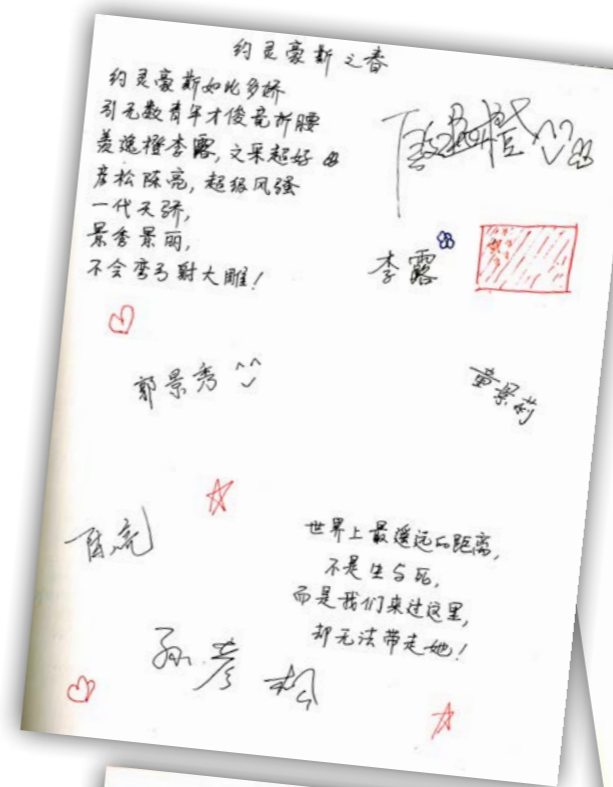 约灵豪斯之春
约灵豪斯如此多娇
引无数青年才俊竞折腰
姜逸橙李露，文采超好
彦松陈亮，超级风强
一代天骄，
景秀景丽，
不会弯弓射大雕！
李露
郭景秀
童景莉
陈亮
孙彦松
世界上最遥远的距离，
不是生与死，
而是我们来过这里，
却无法带走她！